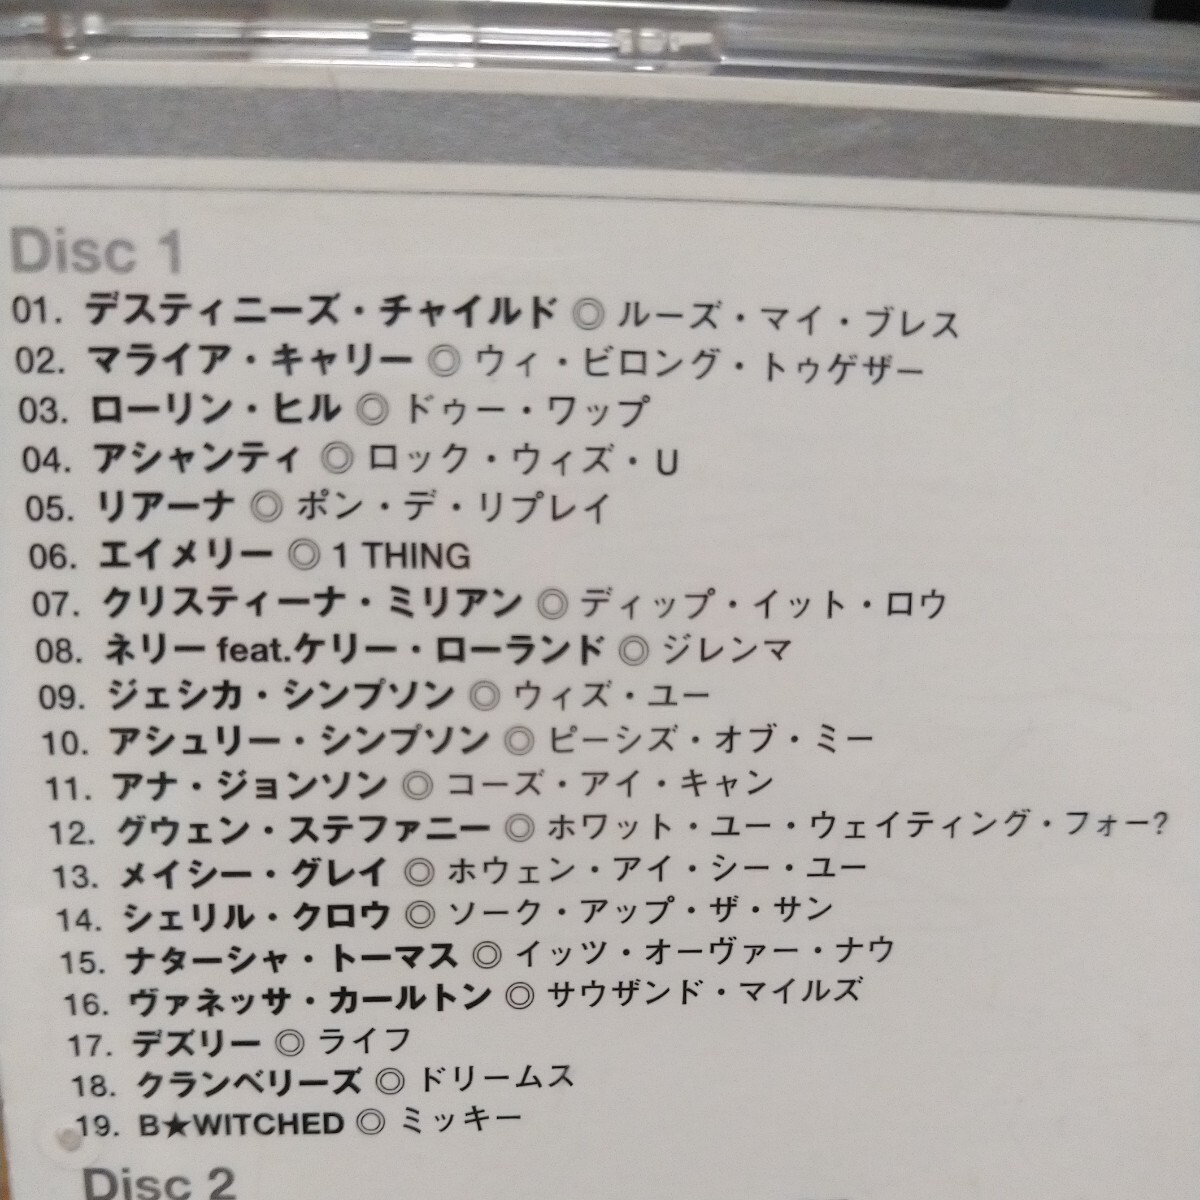 Disc 1
01. デスティニーズ・チャイルド ◎ ルーズ・マイ・ブレス
02. マライア・キャリー ◎ ウィ・ビロング・トゥゲザー
03. ローリン・ヒル ◎ ドゥー・ワップ
04. アシャンティ ◎ ロック・ウィズ・U
05. リアーナ ◎ ポン・デ・リプレイ
06. エイメリー ◎ 1 THING
07. クリスティーナ・ミリアン ◎ ディップ・イット・ロウ
08. ネリー feat.ケリー・ローランド ◎ ジレンマ
09. ジェシカ・シンプソン ◎ ウィズ・ユー
10. アシュリー・シンプソン ◎ ピーシズ・オブ・ミー
11. アナ・ジョンソン ◎ コーズ・アイ・キャン
12. グウェン・ステファニー ◎ ホワット・ユー・ウェイティング・フォー?
13. メイシー・グレイ ◎ ホウェン・アイ・シー・ユー
14. シェリル・クロウ ◎ ソーク・アップ・ザ・サン
15. ナターシャ・トーマス ◎ イッツ・オーヴァー・ナウ
16. ヴァネッサ・カールトン ◎ サウザンド・マイルズ
17. デズリー ◎ ライフ
18. クランベリーズ ◎ ドリームス
19. B★WITCHED ◎ ミッキー
Disc 2